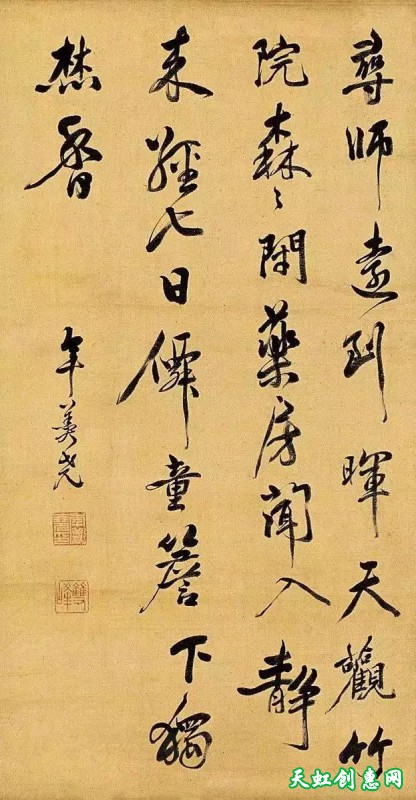 尋師遠到暉天觀竹
院森〻閉藥房聞入靜
来經七日僊童簷下獨
焚香
年羹尧
天虹创意网